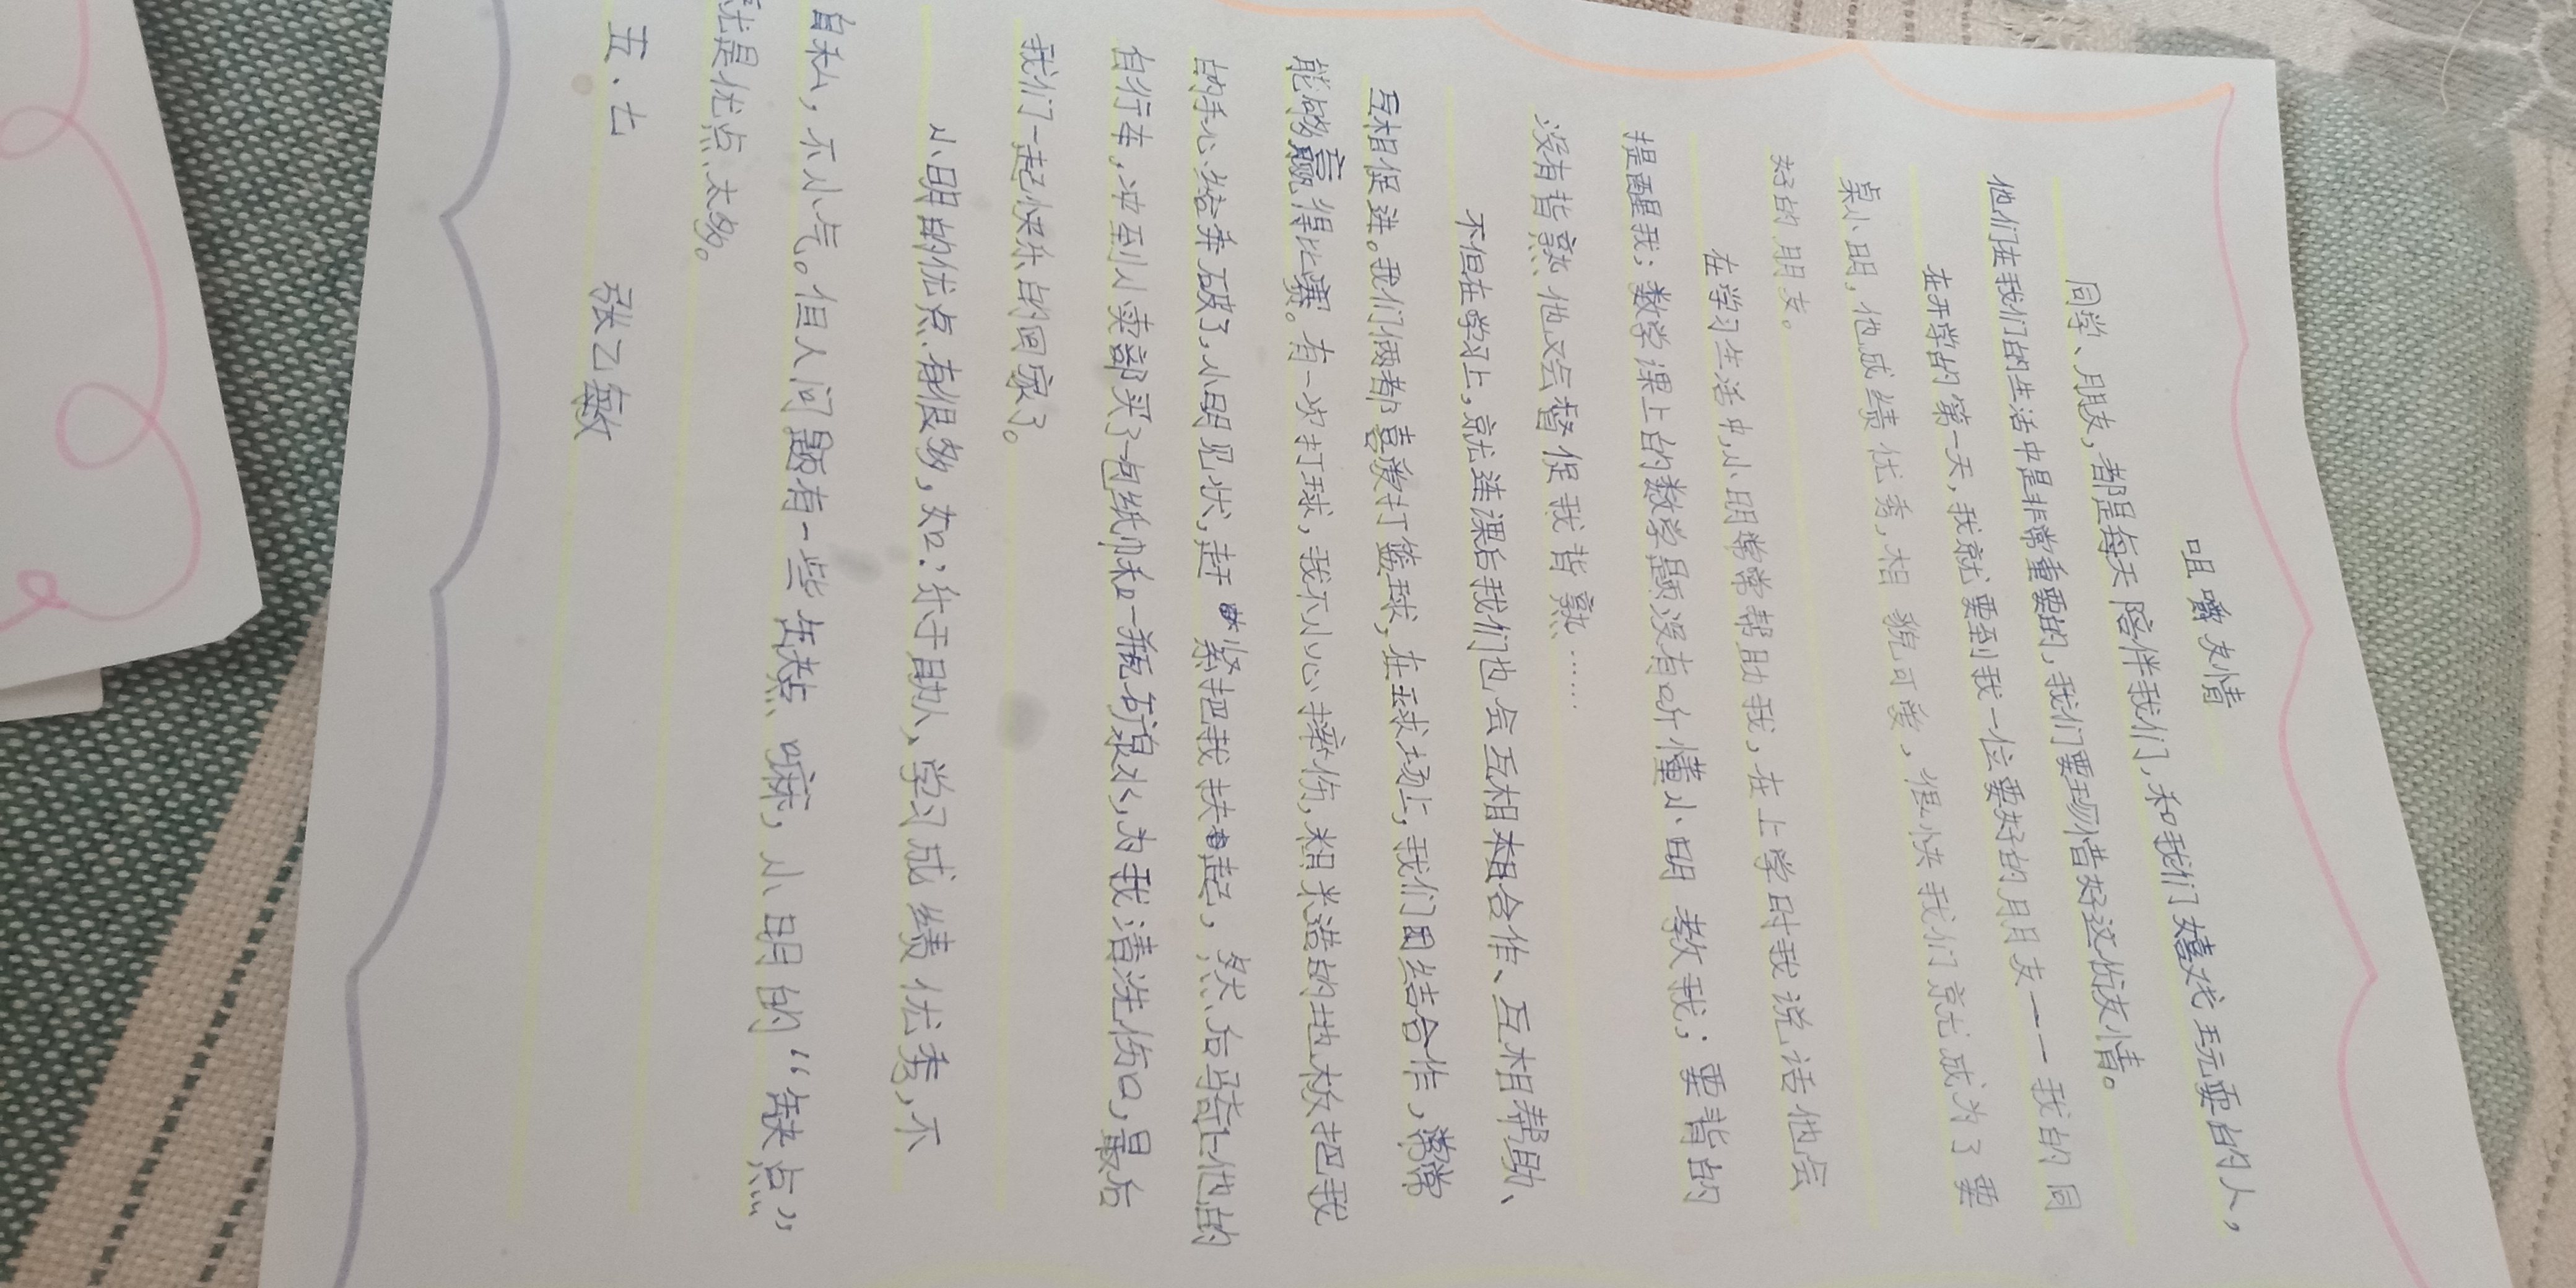 咀嚼友情
同学、朋友，都是每天陪伴我们，和我们嬉戏玩耍的人，
他们在我们的生活中是非常重要的，我们要珍惜好这份友情。
在开学的第一天，我就要到我一位要好的朋友——我的同
桌小明，他成绩优秀，相貌可爱，很快我们就成为了要
好的朋友。
在学习生活中，小明常常帮助我，在上学时我说话他会
提醒我；数学课上的数学题没有听懂小明教我；要背的
没有背熟他又会督促我背熟……
不但在学习上，就连课后我们也会互相合作、互相帮助、
互相促进。我们俩都喜爱打篮球，在球场上，我们团结合作，常常
能够赢得比赛。有一次打球，我不小心摔伤，粗糙的地板把我
的手心给弄破了，小明见状，赶紧把我扶起，然后骑上他的
自行车，冲到小卖部买了一包纸巾和一瓶矿泉水，为我清洗伤口，最后
我们一起快乐的回家了。
小明的优点有很多，如：乐于助人、学习成绩优秀，不
自私，不小气。但人问题有一些缺点嘛，小明的“缺点”
就是优点太多。
五.七 张乙敏